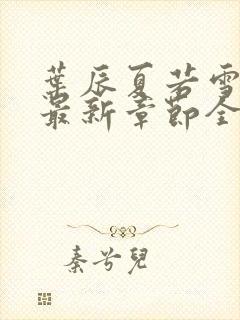 葉辰夏若雪
最新章節全
秦兮兒